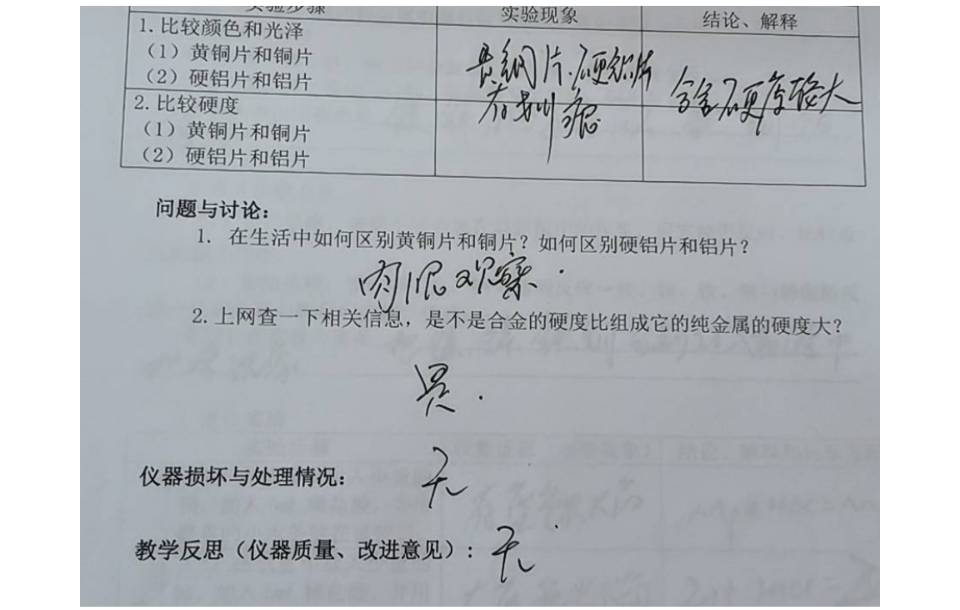 实验步骤
实验现象
结论、解释
1.比较颜色和光泽
(1)黄铜片和铜片
(2)硬铝片和铝片
2.比较硬度
(1)黄铜片和铜片
(2)硬铝片和铝片
黄铜片、硬铝片
有划痕
合金硬度较大
问题与讨论:
1. 在生活中如何区别黄铜片和铜片?如何区别硬铝片和铝片?
肉眼观察.
2.上网查一下相关信息,是不是合金的硬度比组成它的纯金属的硬度大?
是.
仪器损坏与处理情况:
无
教学反思(仪器质量、改进意见):
无.